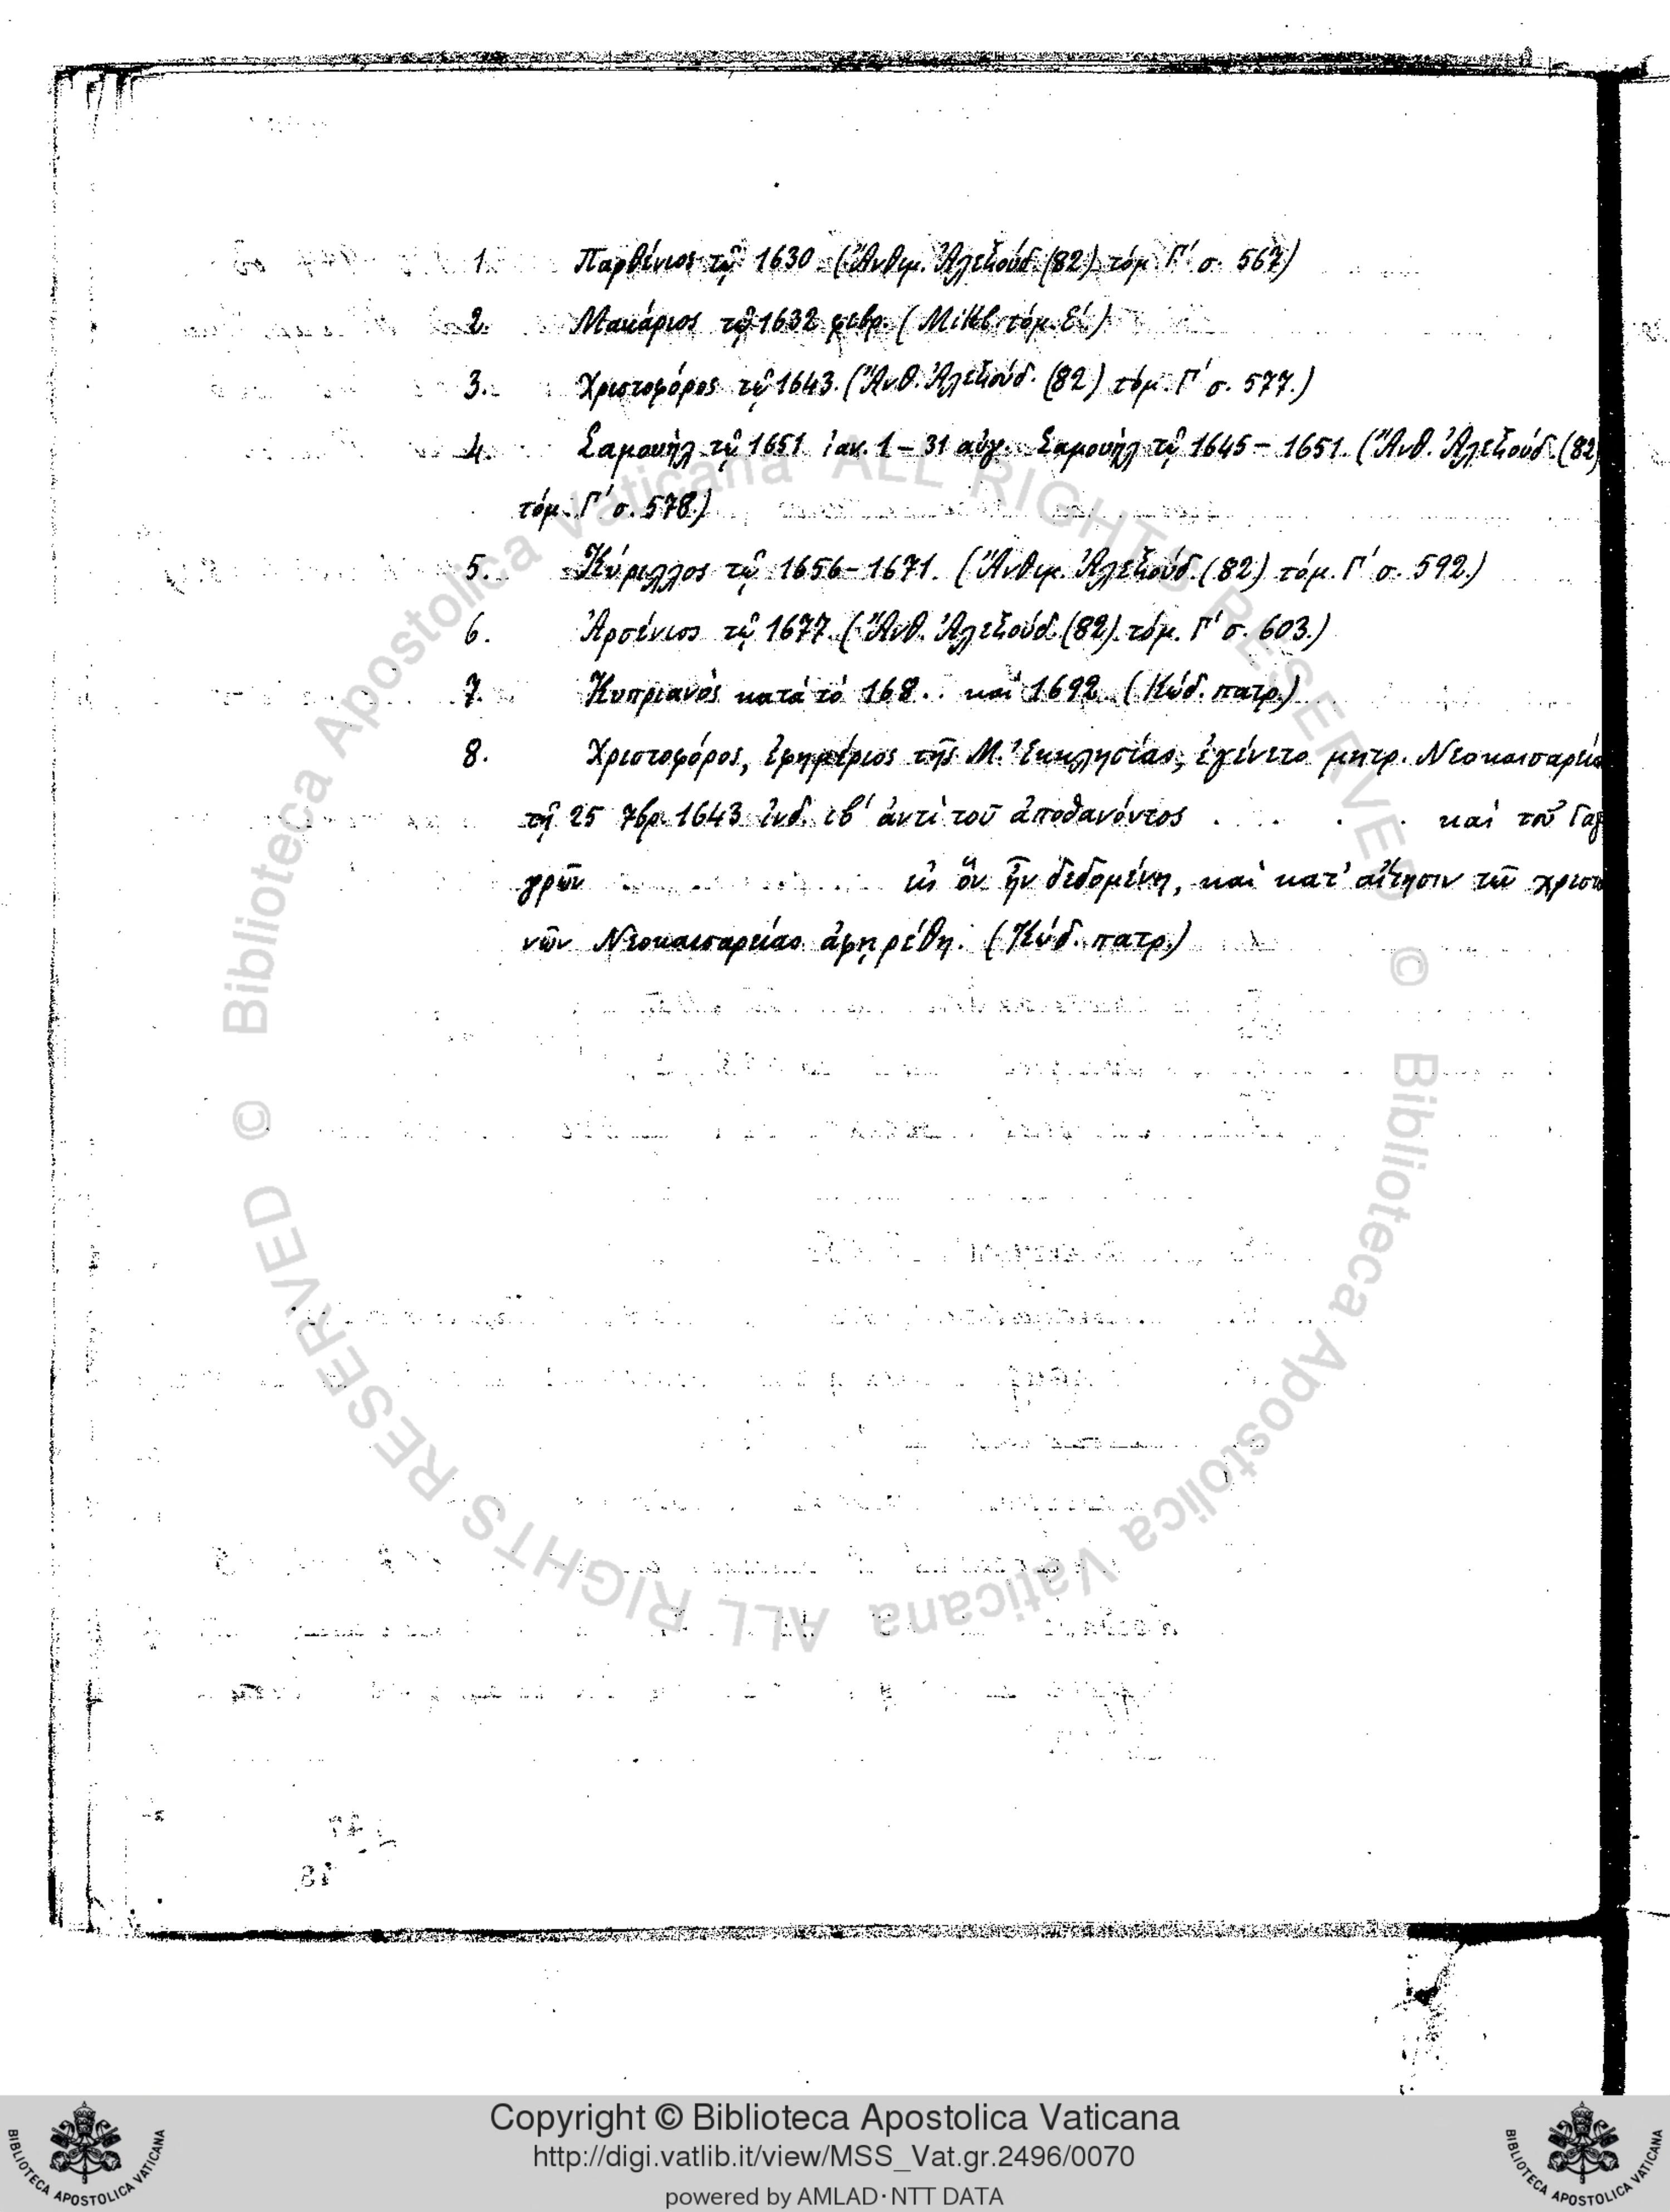 1. Παρθένιος τῷ 1630 (Ἄνθιμ. Ἀλεξούδ. (82) τόμ. Γ' σ. 567)
2. Μακάριος τῷ 1632 φεβρ. (Mikl. τόμ. Ε΄.)
3. Χριστοφόρος τῷ 1643. (Ἄνθ. Ἀλεξούδ. (82) τόμ. Γ' σ. 577.)
4. Σαμουὴλ τῷ 1651 ἰαν. 1 – 31 αὐγ. Σαμουὴλ τῷ 1645 – 1651. (Ἄνθ. Ἀλεξούδ. (82)
τόμ. Γ' σ. 578.)
5. Κύριλλος τῷ 1656–1671. (Ἄνθιμ. Ἀλεξούδ. (82) τόμ. Γ' σ. 592.)
6. Ἀρσένιος τῷ 1677. (Ἄνθ. Ἀλεξούδ. (82). τόμ. Γ' σ. 603.)
7. Κυπριανὸς κατὰ τὸ 168.. καὶ 1692. (Κώδ. πατρ.)
8. Χριστοφόρος, ἐφημέριος τῆς Μ. Ἐκκλησίας, ἐγένετο μητρ. Νεοκαισαρεία
τῇ 25 7βρ. 1643 ἰνδ. ιβ' ἀντὶ τοῦ ἀποθανόντος . . . . καὶ τοῦ Γαγ
γρῶν εἰς ὃν ἦν δεδομένη, καὶ κατ' αἴτησιν τῶν χριστια
νῶν Νεοκαισαρείας ἀφῃρέθη. (Κώδ. πατρ.)
© Biblioteca Apostolica Vaticana ALL RIGHTS RESERVED
© Biblioteca Apostolica Vaticana ALL RIGHTS RESERVED
Copyright © Biblioteca Apostolica Vaticana
http://digi.vatlib.it/view/MSS_Vat.gr.2496/0070
powered by AMLAD·NTT DATA
BIBLIOTECA APOSTOLICA VATICANA
BIBLIOTECA APOSTOLICA VATICANA